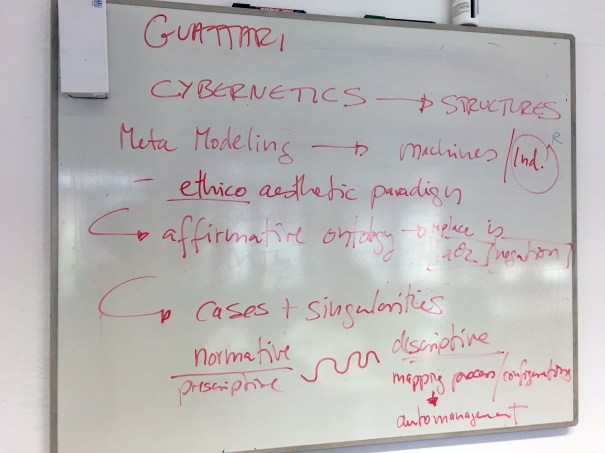 GUATTARI
CYBERNETICS → STRUCTURES
Meta Modeling → machines / Ind. R
– ethico aesthetic paradigm
affirmative ontology → replace is
[negation]
cases + singularities
normative descriptive
prescriptive mapping process/configurations
automanagement